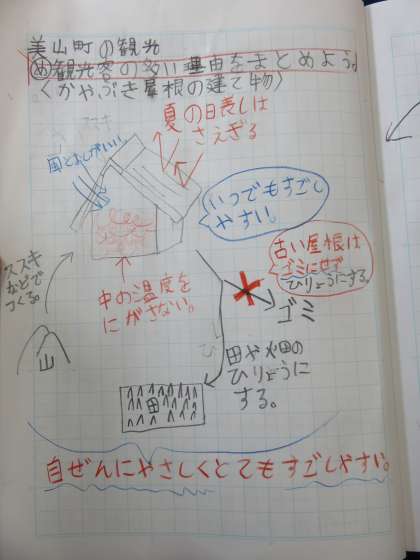 美山町の観光
め観光客の多い理由をまとめよう。
〈かやぶき屋根の建て物〉
夏の日表しは
さえぎる
いつでもすごし
やすい。
ススキ
などで
つくる。
中の温度を
にがさない。
古い屋根は
ゴミにせず
ひりょうにする。
ゴミ
山
田や畑の
ひりょうに
する。
田
自ぜんにやさしくとてもすごしやすい。